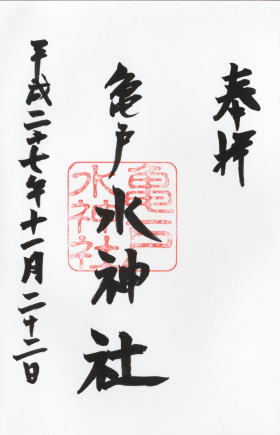 奉拝
亀戸水神社
亀戸
水神社
平成二十七年十一月二十二日